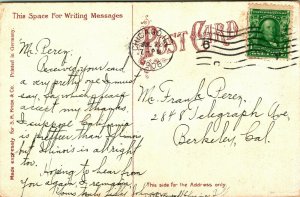 This Space For Writing Messages
POST CARD
Mr. Perez.
Received your card
a very pretty one I must
say, for which please
accept my thanks. I
suppose California
is prettier than Illinois
but Illinois is alright
too. Hoping to hear from
you again, I remain,
Mr. Frank Perez.
2848 Telegraph Ave,
Berkeley,
Cal.
This side for the Address only
Made expressly for S. H. Knox & Co.
Printed in Germany.
CHICAGO
1908
6